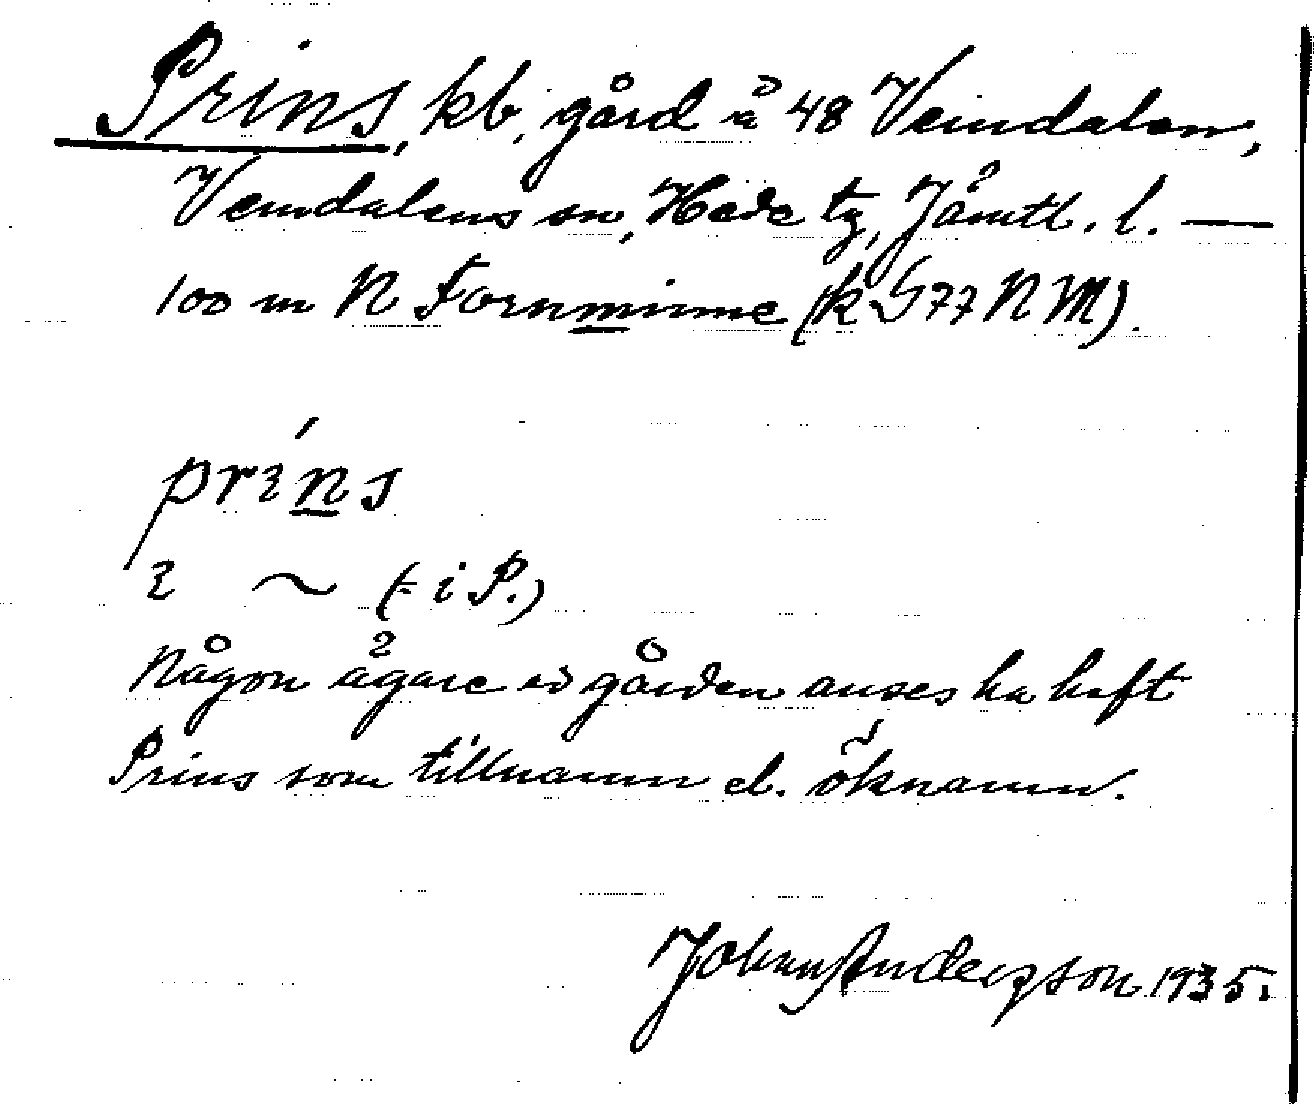 Prins, kb, gård å 48 Vemdalen,
Vemdalens sn, Hede tg, Jämtl. l. —
100 m N Fornminne (k G77 NM).
prins
i ~ (= i P.)
Någon ägare av gården anses ha haft
Prins som tillnamn el. öknamn.
Johan Anderson 1935.